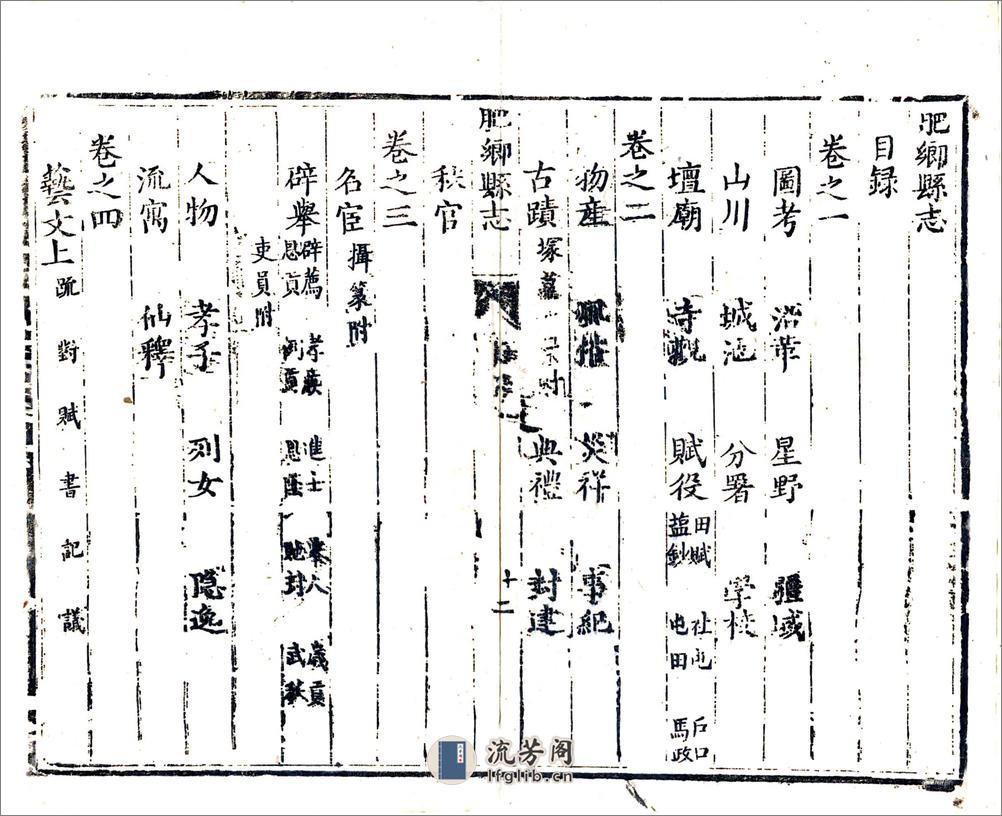 肥鄉縣志
目録
卷之一
圖考 沿革 星野 疆域
山川 城池 分署 學校
壇廟 寺觀 賦役 田賦 社屯 戶口 鹽鈔 屯田 馬政
卷之二
物産 災祥 事紀
古蹟 塚墓 典禮 封建
肥鄉縣志
十二
秩官
卷之三
名宦 攝篆附
辟舉 辟薦 孝廉 進士 舉人 歲貢 恩貢 例貢 恩蔭 馳封 武秩
吏員附
人物 孝子 列女 隠逸
流寓 仙釋
卷之四
藝文上 疏 對 賦 書 記 議
流芳阁
lfglib.cn